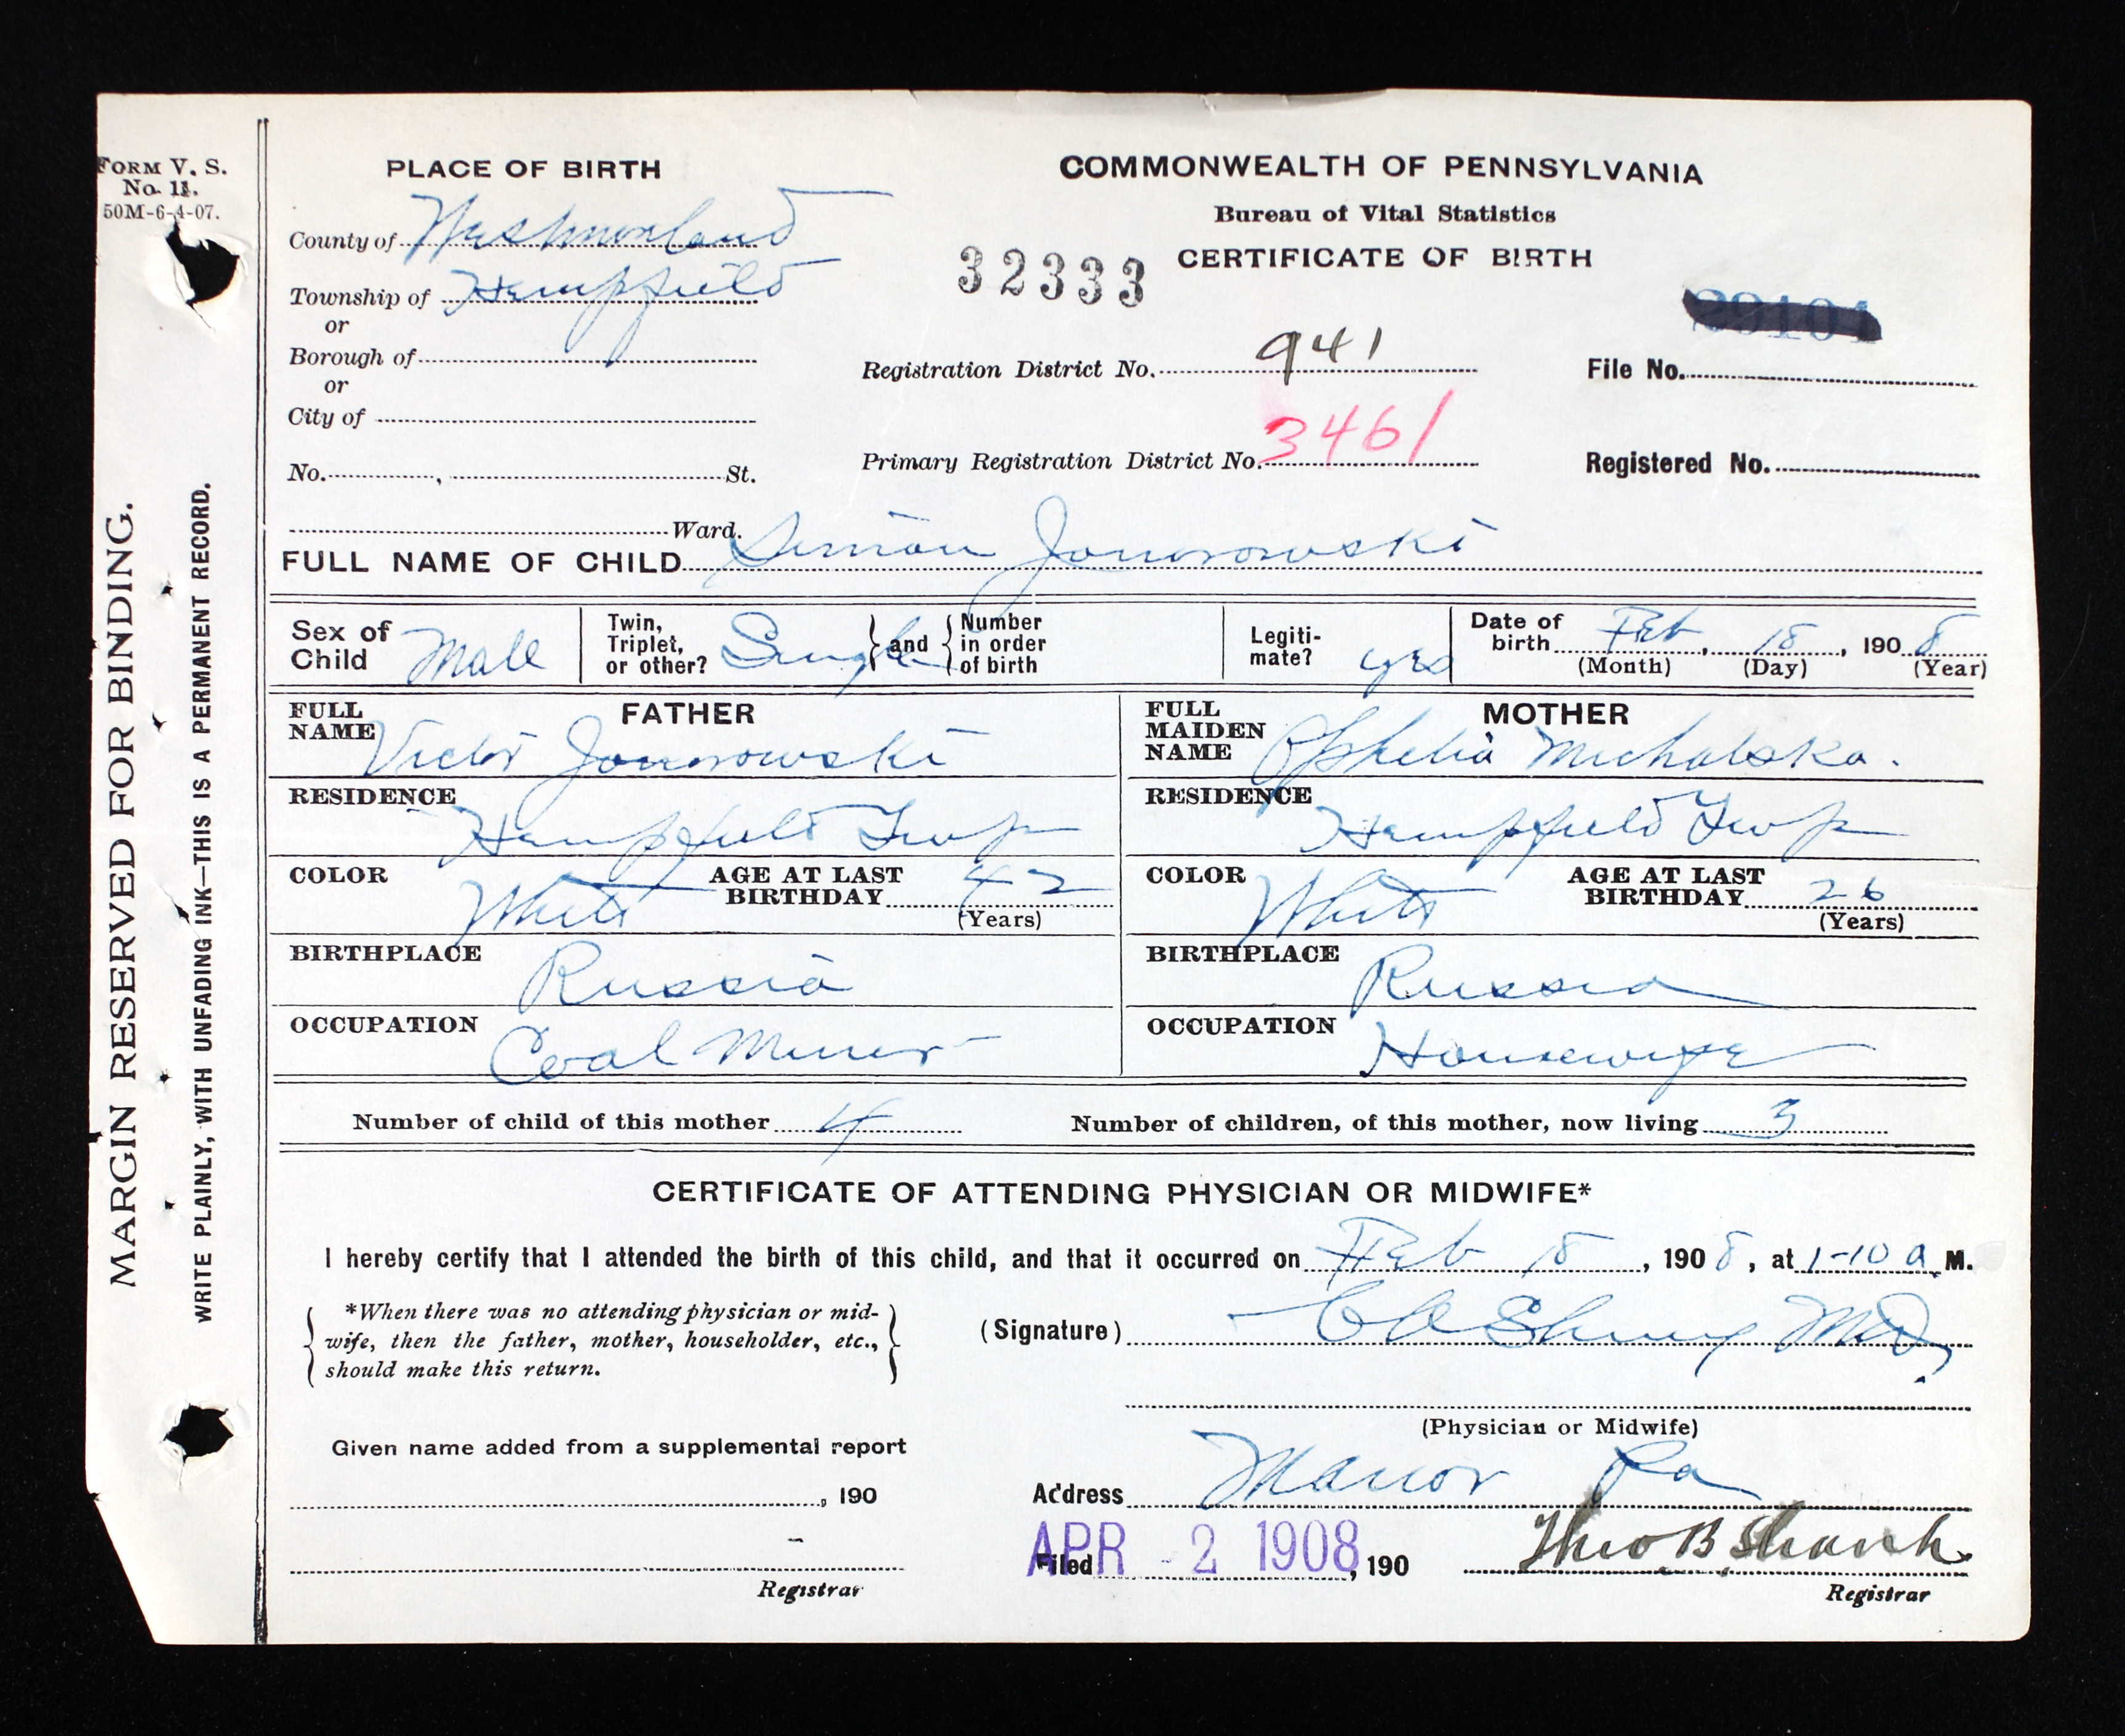 FORM V. S.
No. 11.
50M-6-4-07.
MARGIN RESERVED FOR BINDING.
WRITE PLAINLY, WITH UNFADING INK—THIS IS A PERMANENT RECORD.
PLACE OF BIRTH
County of Westmoreland
Township of Hempfield
or
Borough of
or
City of
No. , St.
Ward.
COMMONWEALTH OF PENNSYLVANIA
Bureau of Vital Statistics
CERTIFICATE OF BIRTH
32333
Registration District No. 941
File No.
Primary Registration District No. 3461
Registered No.
FULL NAME OF CHILD Simon
Sex of Child Male
Twin, Triplet, or other? Single and Number in order of birth
Legitimate? yes
Date of birth Feb, 18, 1908
(Month) (Day) (Year)
FATHER
FULL NAME Victor
RESIDENCE Hempfield Twp
COLOR White AGE AT LAST BIRTHDAY 42
(Years)
BIRTHPLACE Russia
OCCUPATION Coal Miner
MOTHER
FULL MAIDEN NAME Ophelia Michalska.
RESIDENCE Hempfield Twp
COLOR White AGE AT LAST BIRTHDAY 26
(Years)
BIRTHPLACE Russia
OCCUPATION Housewife
Number of child of this mother 4 Number of children, of this mother, now living 3
CERTIFICATE OF ATTENDING PHYSICIAN OR MIDWIFE*
I hereby certify that I attended the birth of this child, and that it occurred on Feb 18, 1908, at 1-10 a M.
*When there was no attending physician or mid-
wife, then the father, mother, householder, etc.,
should make this return.
(Signature) M.D.
(Physician or Midwife)
Given name added from a supplemental report
, 190
Registrar
Address Manor Pa
Filed APR - 2 1908, 190 Theo B
Registrar